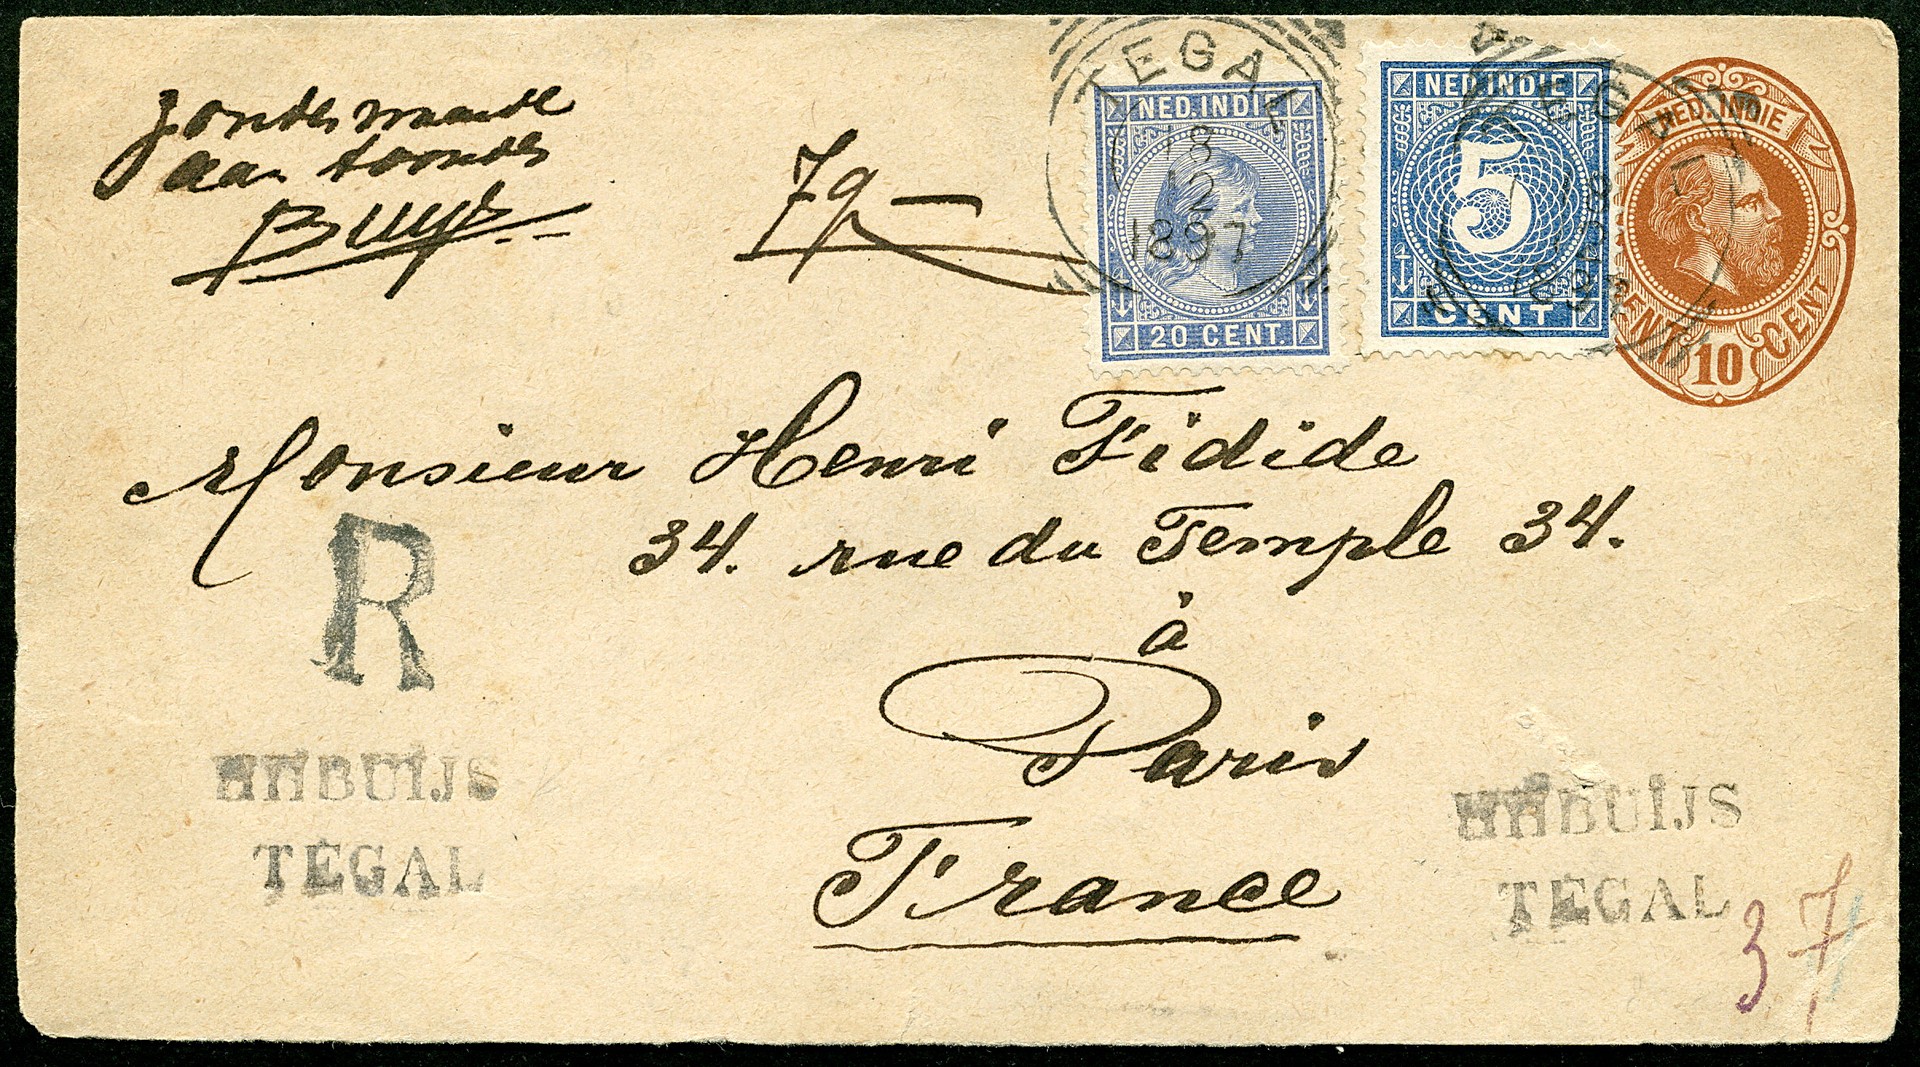 zonder waarde
aan toonder
Buijs
79
TEGAL
18
12
1897
NED. INDIE
20 CENT.
NED. INDIE
5
CENT
TEGAL
NED. INDIE
CENT 10 CENT
Monsieur Henri Fidide
34. rue du Temple 34.
à
Paris
France
R
HHBUIJS
TEGAL
HHBUIJS
TEGAL
37